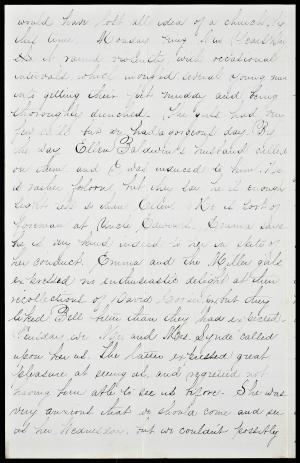 would have lost all idea of a church by
this time. Monday
it rained violently with occasional
intervals which several young men
into getting their feet muddy and being
thoroughly drenched. The girls had very
few calls but we had a gorgeous day. By
the way, Ellen Baldwin's husband called
on them and I was induced to him. He
is rather forlorn, but they say he is enough
sight to Ellen. He is sort of
foreman at Uncle Edward's. Emma says
he is very kind indeed to her in state of
her conduct. Emma and the Miller girls
expressed no enthusiastic delight at their
recollections of David but they
liked Bell better than they had expected.
Tuesday we Mr. and Mrs. Synde called
upon us. The latter expressed great
pleasure at seeing us, and regretted not
having been able to see us before. She was
very anxious that we should come and see
her Wednesday, but we couldn't possibly